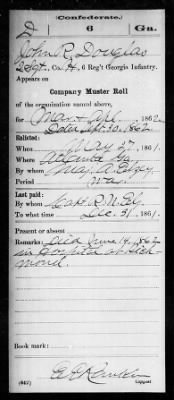 (Confederate.)
D 6 Ga.
John R. Douglas
2 Sgt, Co. H, 6 Reg't Georgia Infantry.
Appears on
Company Muster Roll
of the organization named above,
for Mar & Apl, 1862.
Dated Sept. 30, 1862
Enlisted:
When May 27, 1861.
Where Atlanta Ga.
By whom Maj. A.
Period War
Last paid:
By whom Capt. R. N. Ely
To what time Dec. 31, 1861.
Present or absent
Remarks: Died June 14, 1862
in Hospital at Rich-
mond.
Book mark:
(642) Copyist.